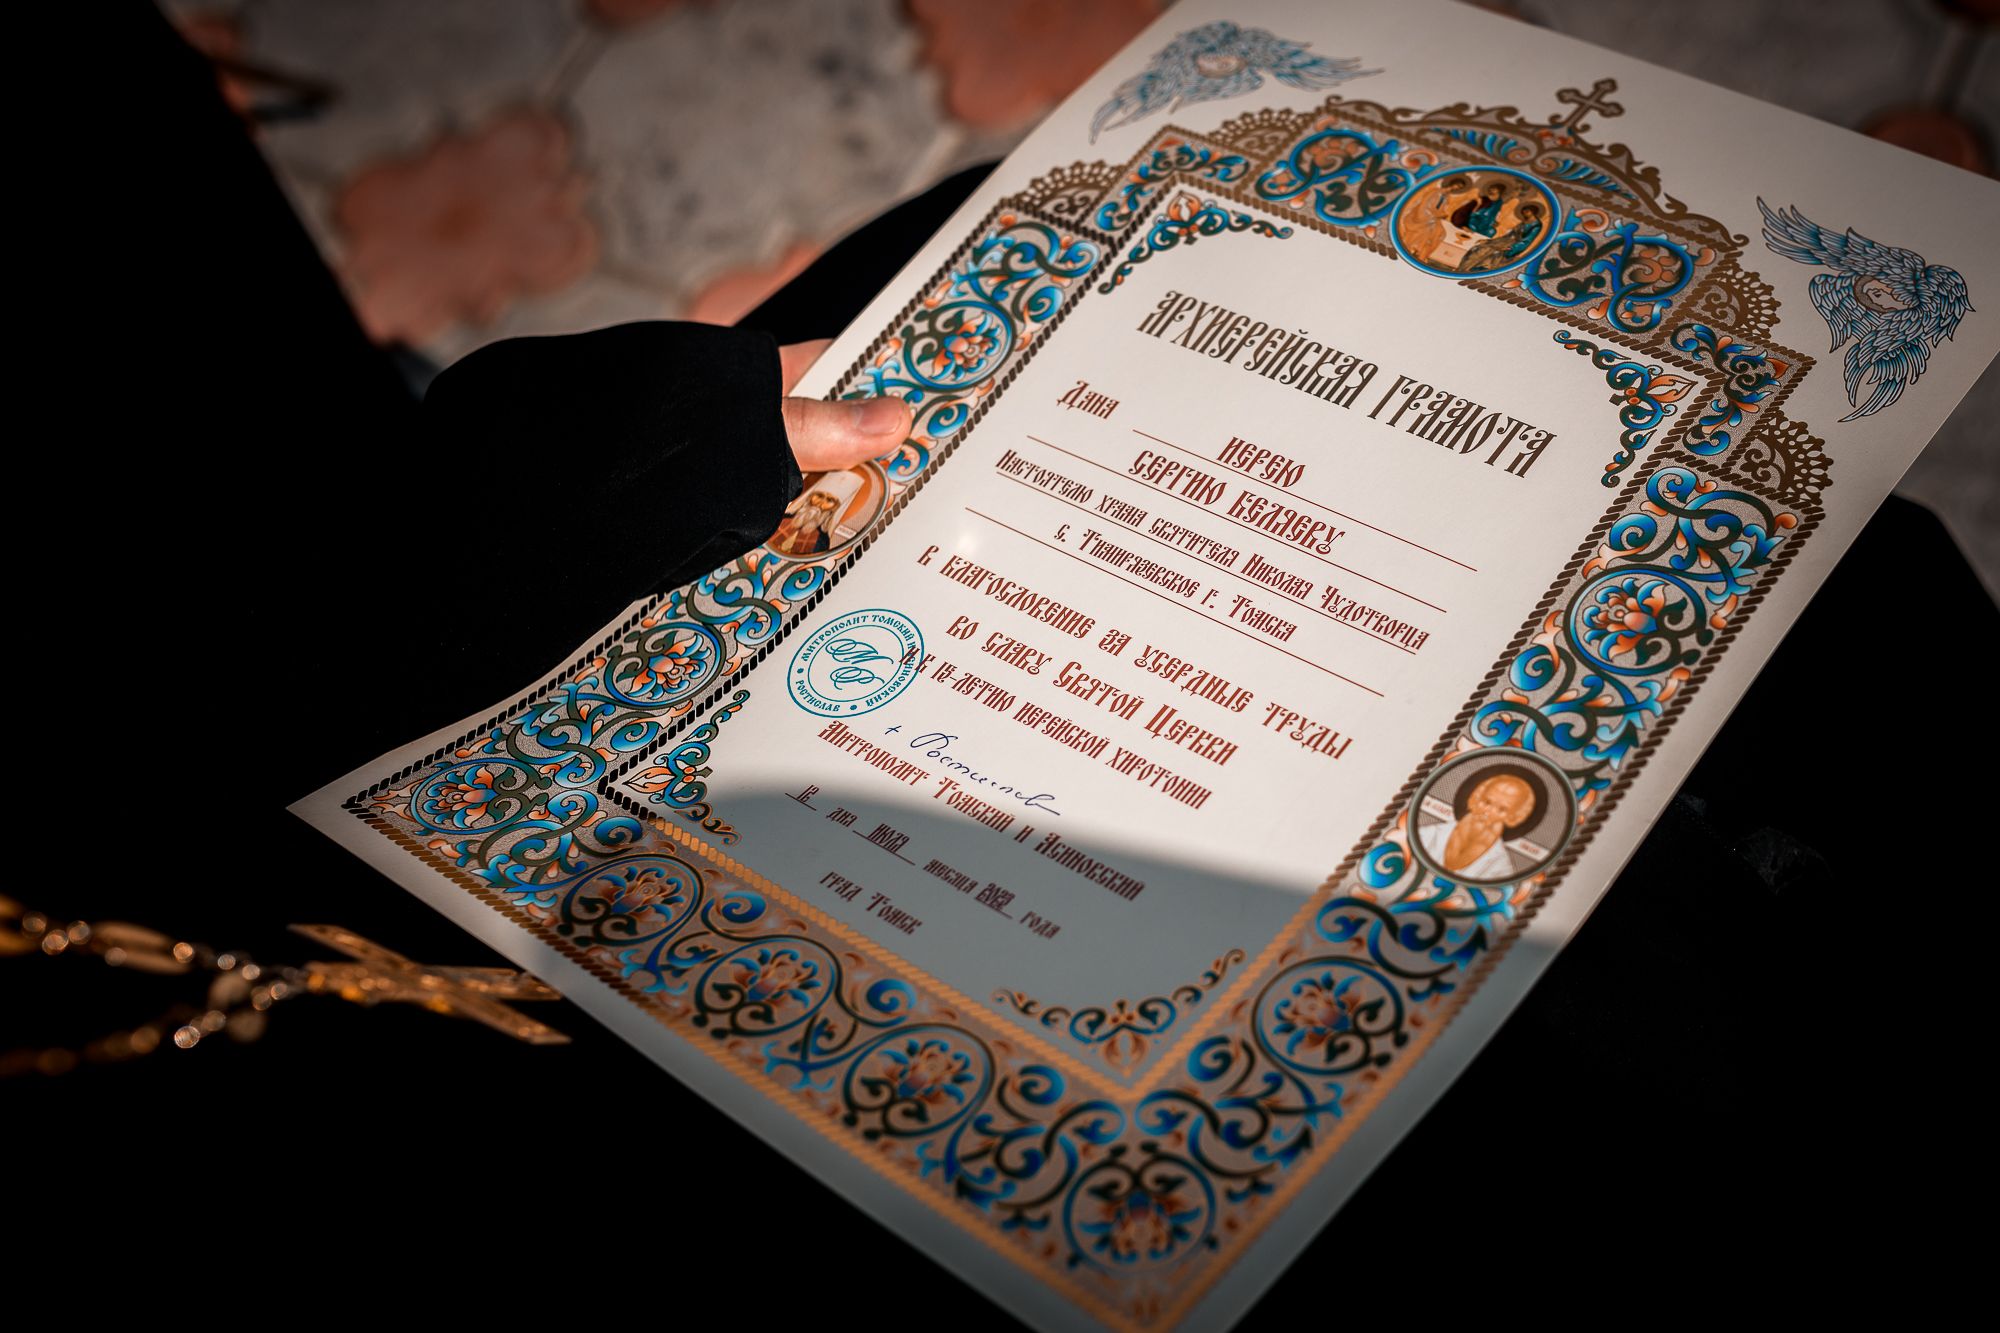 АРХИЕРЕЙСКАЯ ГРАМОТА
Дана
ИЕРЕЮ
СЕРГИЮ БЕЛЯЕВУ
Настоятелю храма святителя Николая Чудотворца
с. Тимирязевское г. Томска
В БЛАГОСЛОВЕНИЕ ЗА УСЕРДНЫЕ ТРУДЫ
ВО СЛАВУ СВЯТОЙ ЦЕРКВИ
И К 15-ЛЕТИЮ ИЕРЕЙСКОЙ ХИРОТОНИИ
МИТРОПОЛИТ ТОМСКИЙ И АСИНОВСКИЙ
РОСТИСЛАВ
МР
+ Ростислав
Митрополит Томский и Асиновский
дня июля месяца 2023 года
град Томск